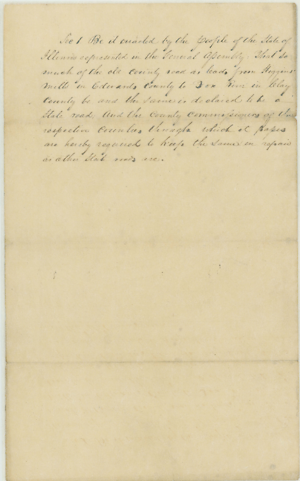 Sec 1 Be it enacted by the People of the State of
Illinois represented in the General Assembly. That so
much of the old County road as leads from
in Edwards County to in Clay
County be and the same is declared to be a
State road. And the County commissioners of the
respective Counties through which it passes
are hereby required to keep the same in repair
as other State roads are.